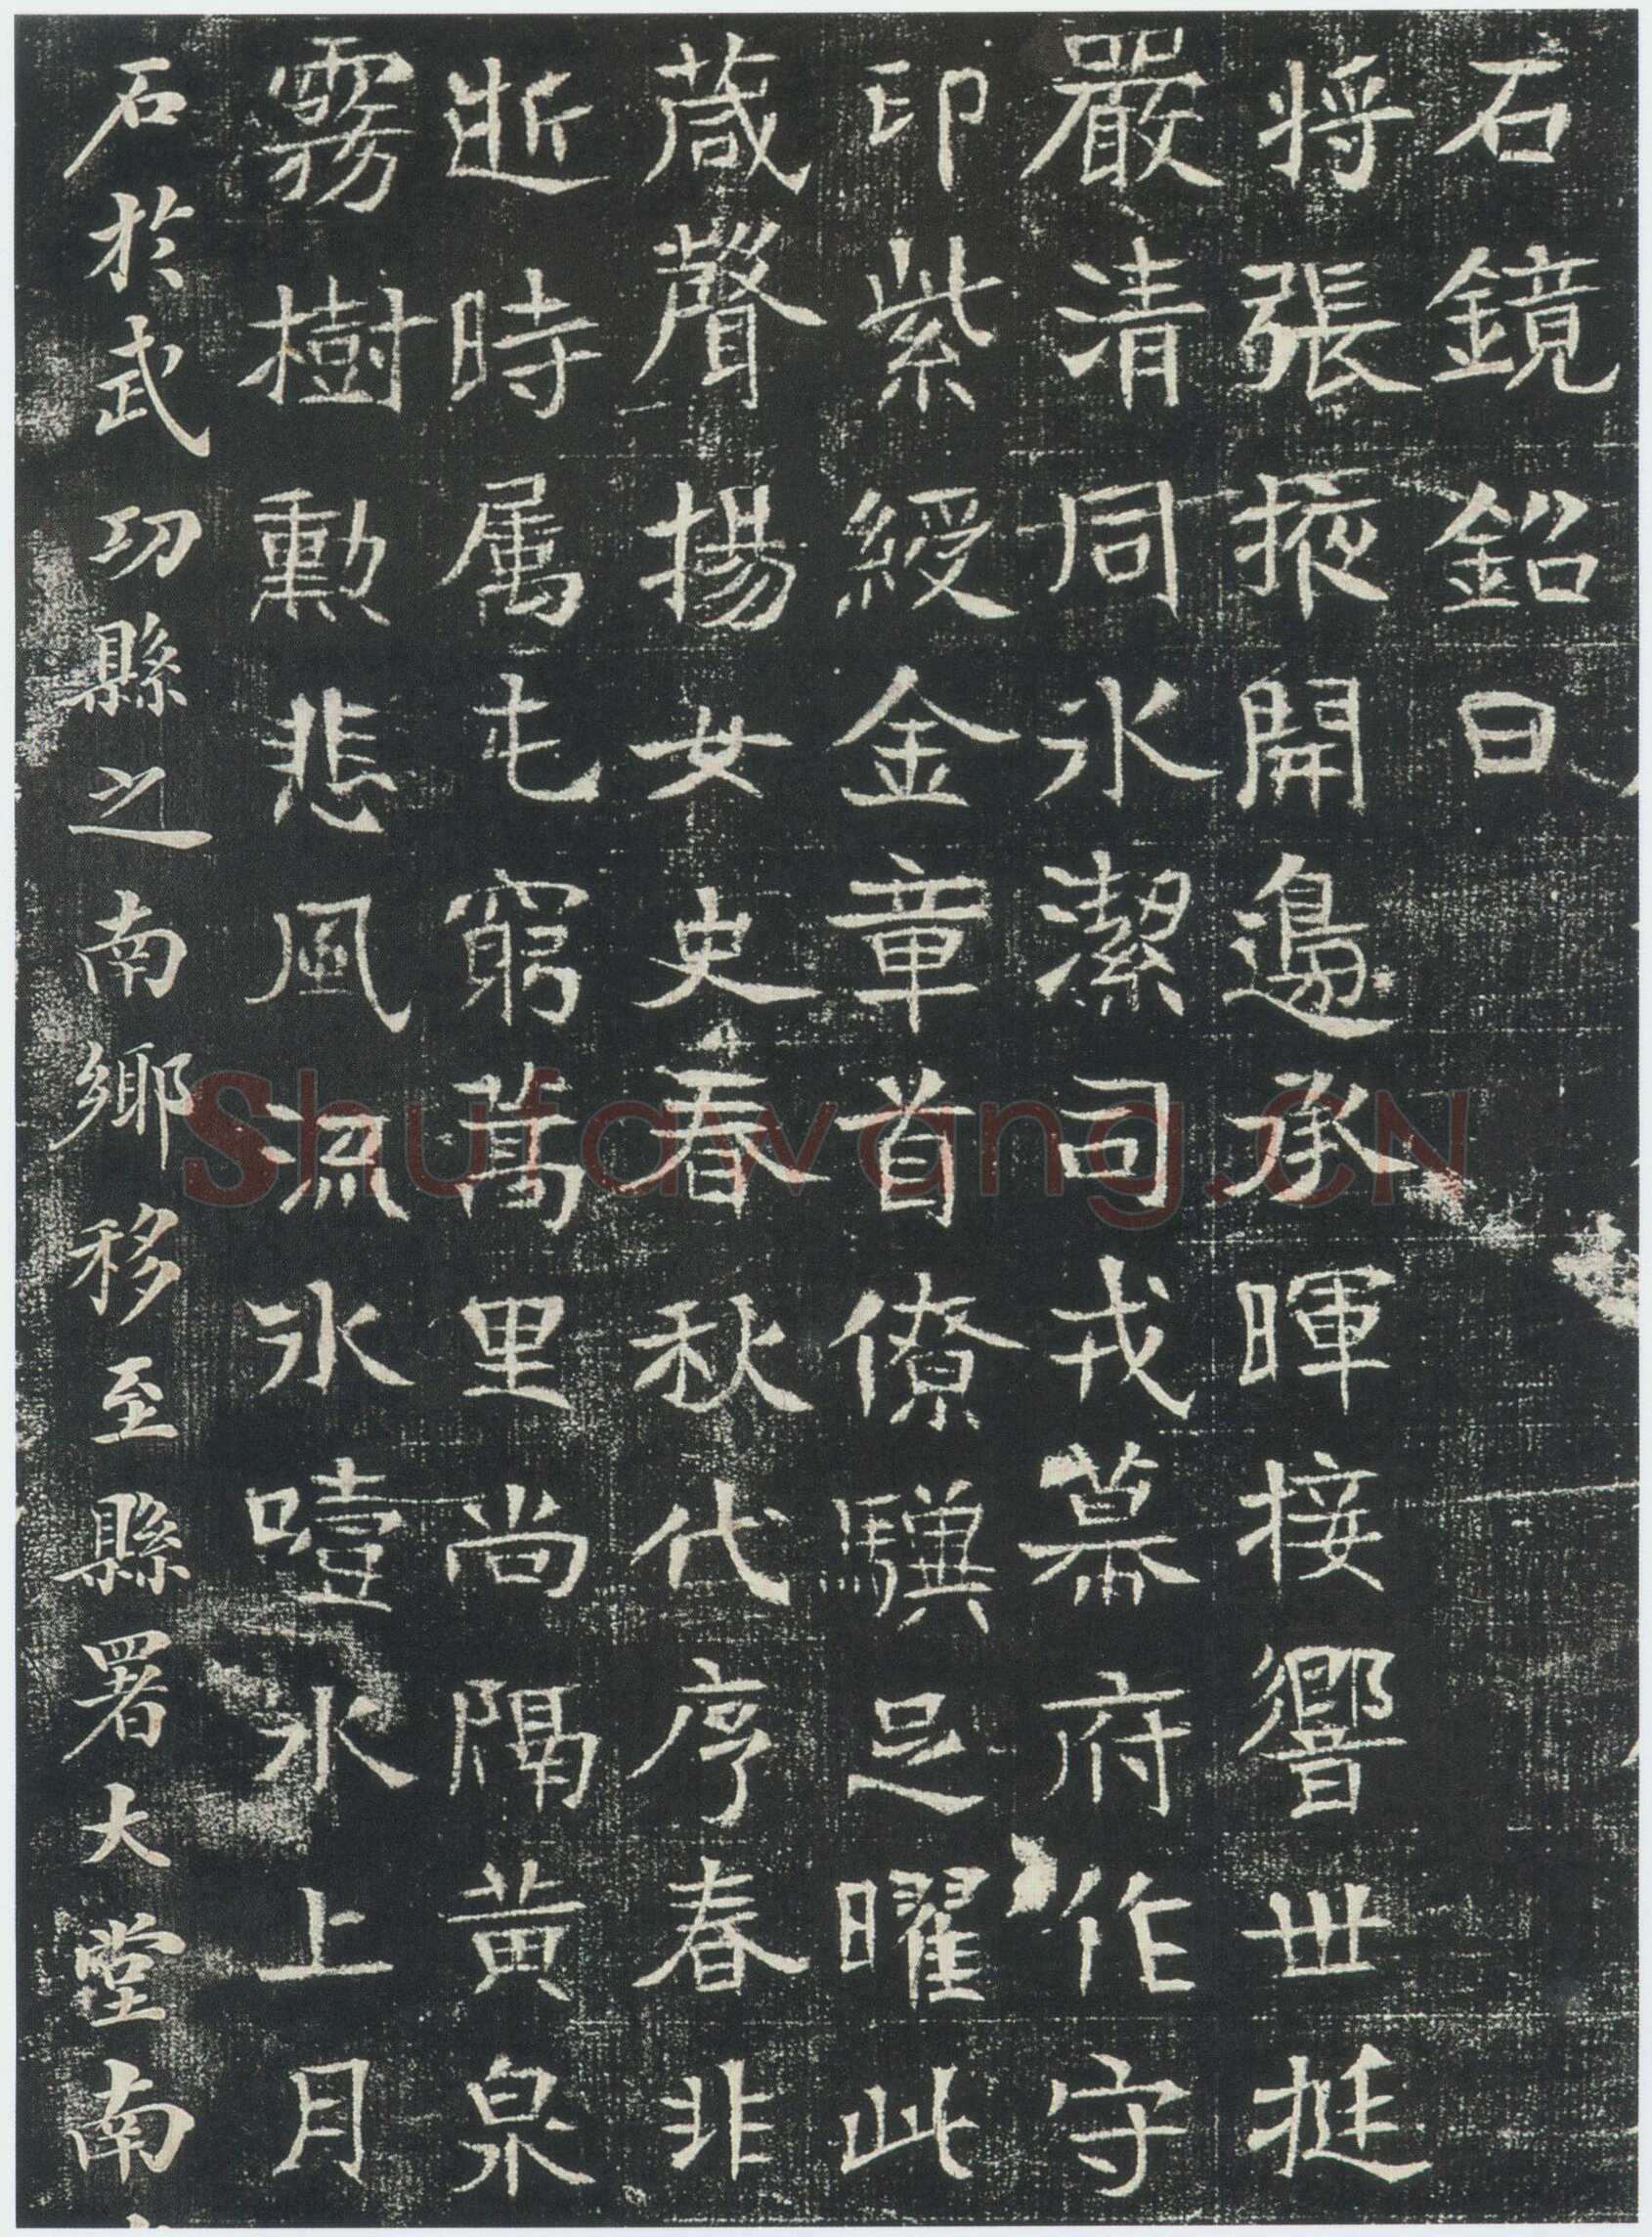 石鏡銘曰
將張掖開邊承暉接響世挺
嚴清同水潔司戎幕府作守
印紫綬金章首僚驥足曜此
葴聲揚女史春秋代序春非
逝時屬屯窮萬里尚隔黃泉
霧樹勳悲風流水噎水上月
石於武功縣之南鄉移至縣署大堂南
Shufawang.CN